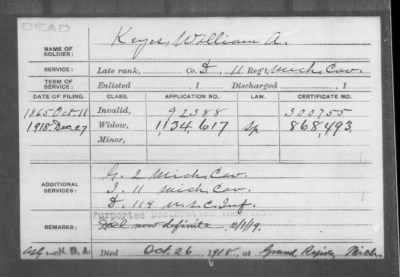 DEAD
NAME OF SOLDIER: Keyes, William A.
SERVICE: Late rank, Co. D, 11 Reg't Mich. Cav.
TERM OF SERVICE: Enlisted , 1 Discharged , 1
DATE OF FILING. CLASS. APPLICATION NO. LAW. CERTIFICATE NO.
1865 Oct. 11 Invalid, 92388 300755
1918 Dec. 27 Widow, 1,134,617 Sp. 868,493.
Minor,
ADDITIONAL SERVICES: G. 2 Mich. Cav.
I. 11 Mich. Cav.
D. 114 U.S.C. Inf.
Purported
REMARKS: now definite, 2/1/19.
Died Oct. 26, 1918, at Grand Rapids, Mich.